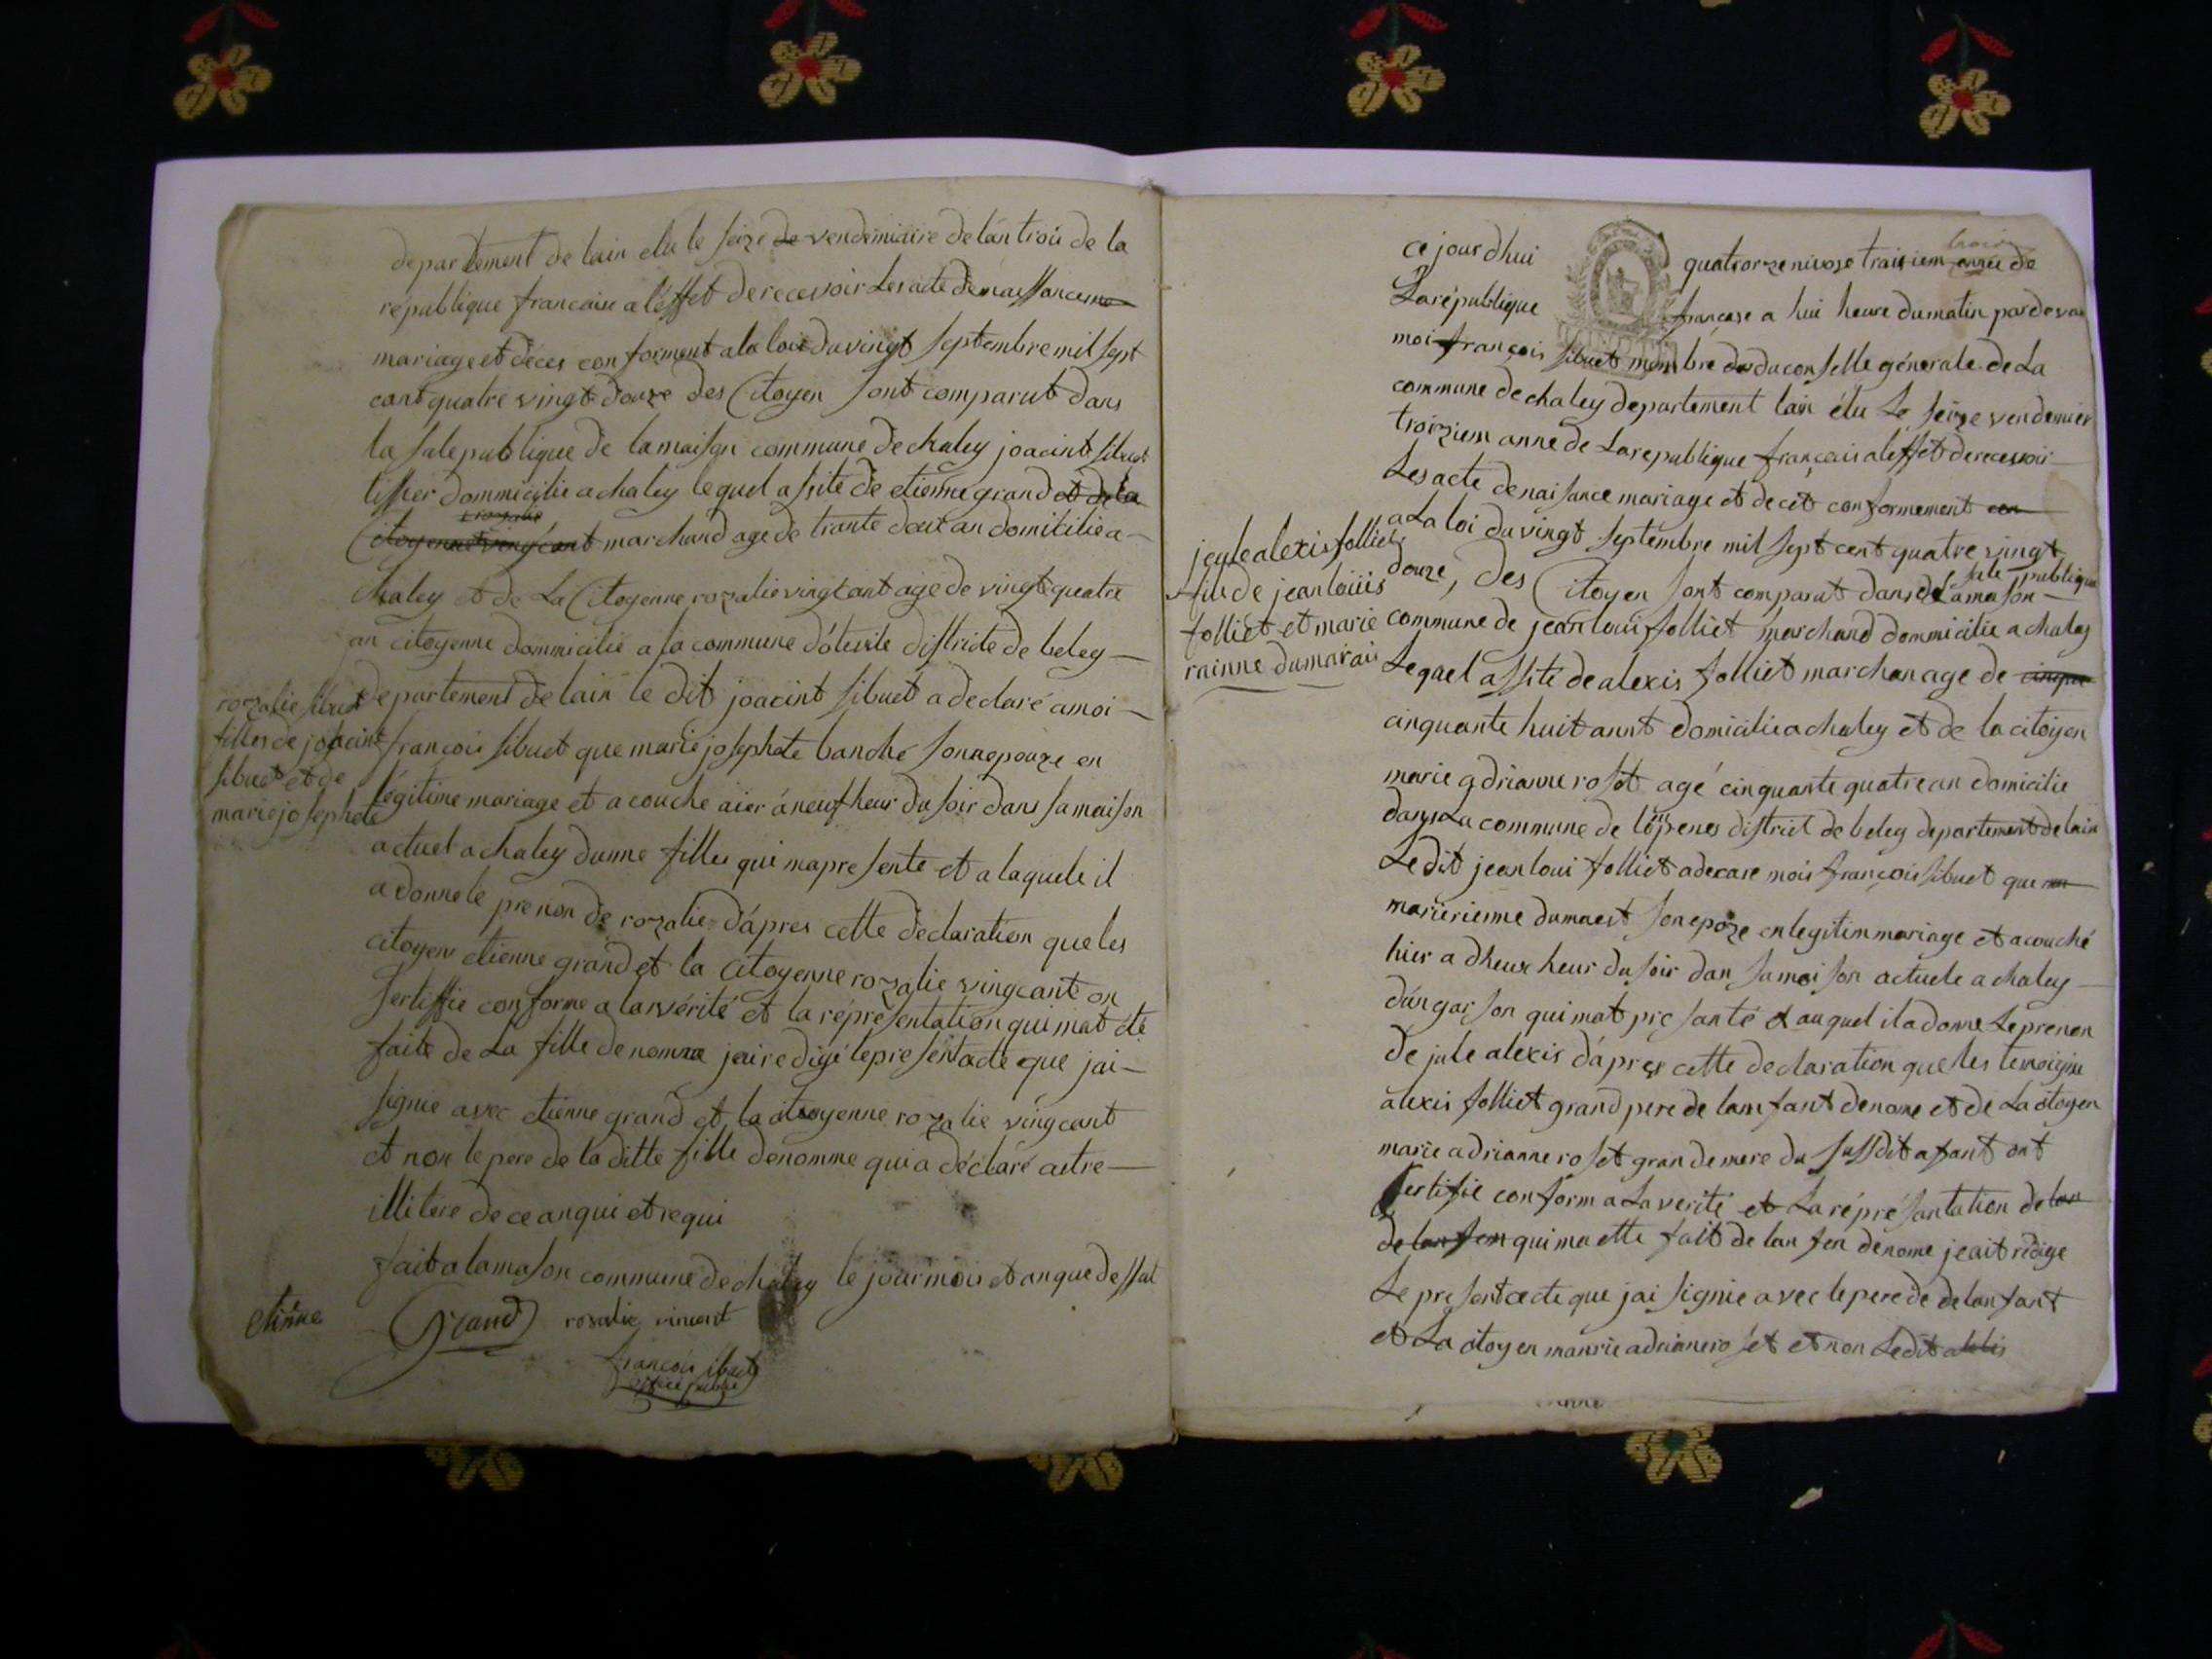 departement de lain elu le seize de vendemiaire de lan trois de la
republique francaise a léffet de recevoir Les acte de naissance
mariage et déces conforment a la loix du vingt septembre mil sept
cant quatre vingt douze des Citoyen sont comparut dans
la sale publique de la maison commune de chaley joacint sibuet
tissier dommicilie a chaley lequel assité de etienne grand et de la
rozalie
Citoyenne vingcant marchand age de trante deux an domicilie a
chaley et de La Citoyenne rozalie vingcant age de vingt quatre
an citoyenne dommicilié a la commune districte de beley
departement de lain le dit joacint sibuet a declaré a moi
rozalie sibuet
filles de joacint
sibuet et de
marie josephete
francois sibuet que marie josephete banche sonnepouze en
légitime mariage et a couche aier á neuf heur du soir dans sa maison
actuel a chaley dunne filles qui ma presente et a laquele il
a donne le prenon de rozalie dápres cette declaration que les
citoyen etienne grand et la citoyenne rozalie vingcant on
sertiffie conforme a la vérité et la réprésentation qui mat été
faite de La fille denomme jai redigé le present acte que jai
signie avec etienne grand et la citoyenne rozalie vingcant
et non le pere de la ditte fille denomme qui a déclaré aitre
illitere de ce anqui et requi
fait a la mason commune de chaley le jour mois et an que dessut
etinne Grand rosalie vincent
francois sibuet
officié public
ce jour dhui quatrorze nivose traisiem année de
trois
La république françase a hui heure du matin par deva
moi françois sibuet membre du conselle générale de La
commune de chaley departement lain élu Le seize vendemier
troiziem anne de La republique français a leffet de recevoir
Les acte de naisance mariage et decét conformement
a La loi du vingt septembre mil sept cent quatre vingt
jeule alexis folliet
fils de jean louiis
folliet et marie
rainne dumarais
douze, des Citoyen sont comparut dans de La mason
sale publique
commune de jean loui folliet marchand dommicilie a chaley
Lequel assité de alexis folliet marchan age de cinque
cinquante huit annt domicilie a chaley et de la citoyen
marie adrianne roset agé cinquante quatre an domicilie
dans La commune de district de beley departement de lain
Le dit jean loui folliet a decare mois françois sibuet que
marierienne dumaest son epoze en legitim mariage et a couché
hier a dheux heur du soir dan sa maison actuele a chaley
dún garson qui mat presanté et auquel il a donne Le prenon
de jule alexis dápres cette declaration que les temoigne
alexis folliet grand pere de lanfant denome et de La citoyen
marie adrianne roset grande mere du susdit afant ont
sertifie conform a La verité et La répresantation de lan
de lanfen qui ma ette fait de lan fen denome jeait redige
Le present acte que jai signie avec le pere de de lanfant
et La citoyen manrie adrianne roset et non Le dit